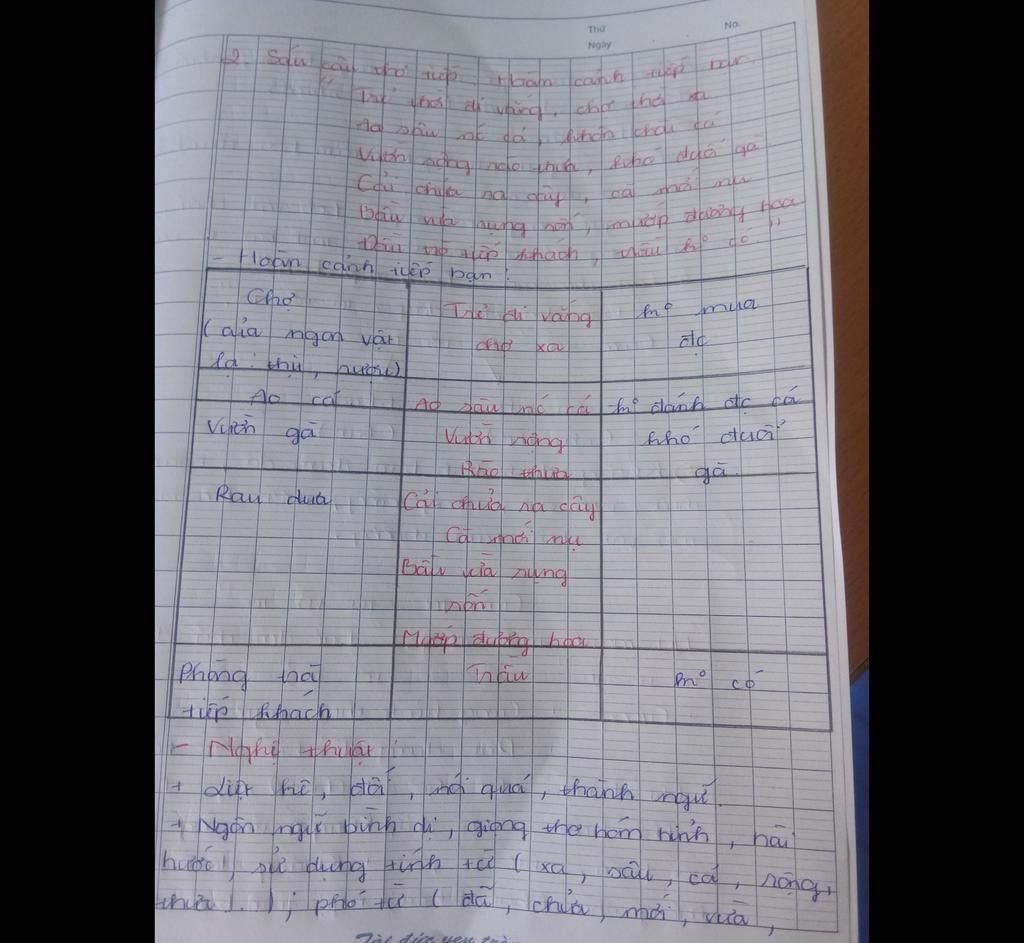 Thứ No.
Ngày
2. Sáu câu thơ tiếp: Hoàn cảnh tiếp bạn
"Trẻ thời đi vắng, chợ thời xa
Ao sâu nc cả, khôn chài cá
Vườn rộng rào thưa, khó đuổi gà
Cải chửa ra cây, cà mới nụ
Bầu vừa rụng rốn, mướp đương hoa
Đầu trò tiếp khách, trầu ko có"
- Hoàn cảnh tiếp bạn:
Chợ Trẻ đi vắng ko mua
(của ngon vật chợ xa đc
lạ: thịt, rượu)
Ao cá Ao sâu nc cả ko đánh đc cá
Vườn gà Vườn rộng khó đuổi
Rào thưa gà
Rau dưa Cải chửa ra cây
Cà mới nụ
Bầu vừa rụng
rốn
Mướp đương hoa
Phòng trà Trầu ko có
tiếp khách
- Nghệ thuật:
+ liệt kê, đối, nói quá, thành ngữ.
+ Ngôn ngữ bình dị, giọng thơ hóm hỉnh, hài
hước, sử dụng tính từ (xa, sâu, cả, rộng,
thưa...); phó từ (đã, chửa, mới, vừa,